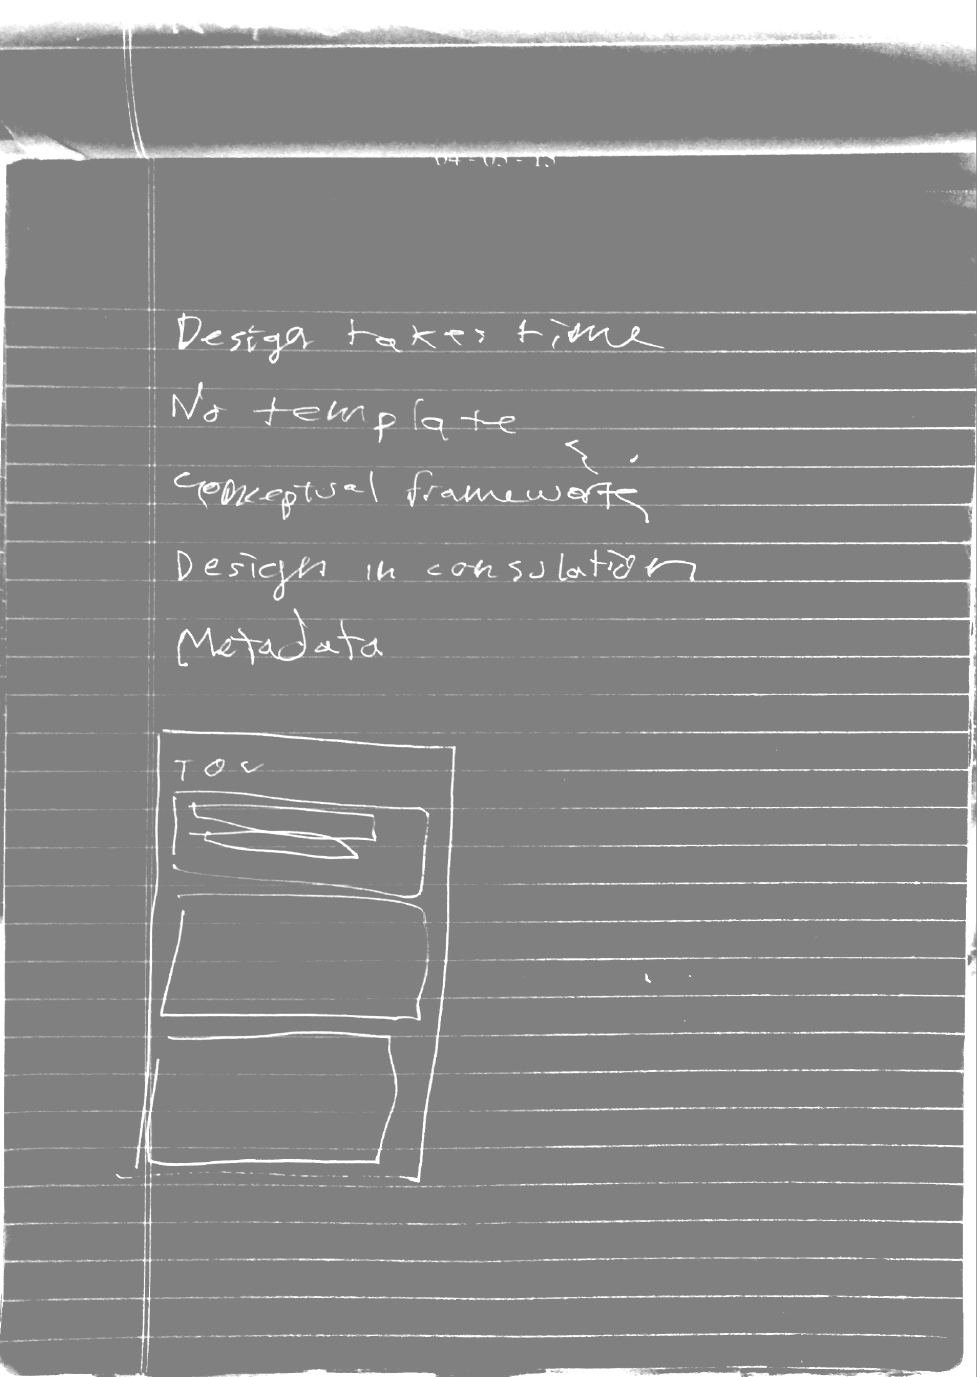 Design takes time
No template
Conceptual frameworks
Design in consulation
Metadata
TOC